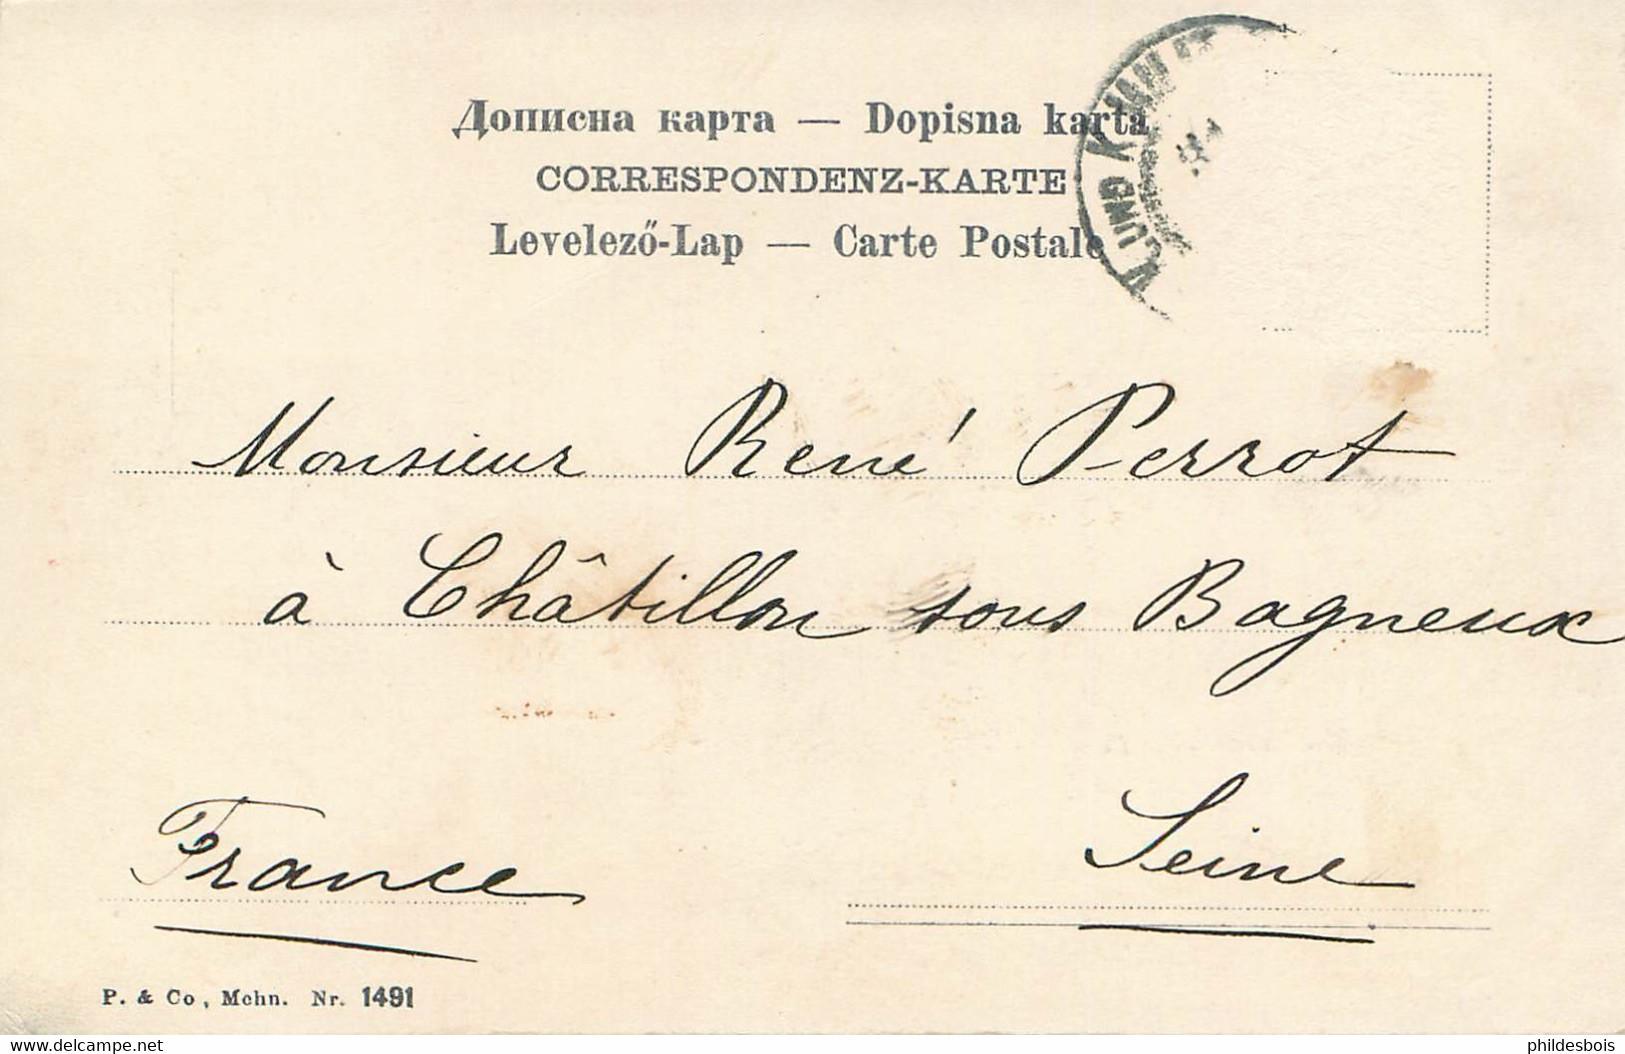 Дописна карта — Dopisna karta
CORRESPONDENZ-KARTE
Levelező-Lap — Carte Postale
K. UND K. MILIT
Monsieur René Perrot
à Châtillon sous Bagneux
Seine
France
P. & Co, Mchn. Nr. 1491
www.delcampe.net
phildesbois